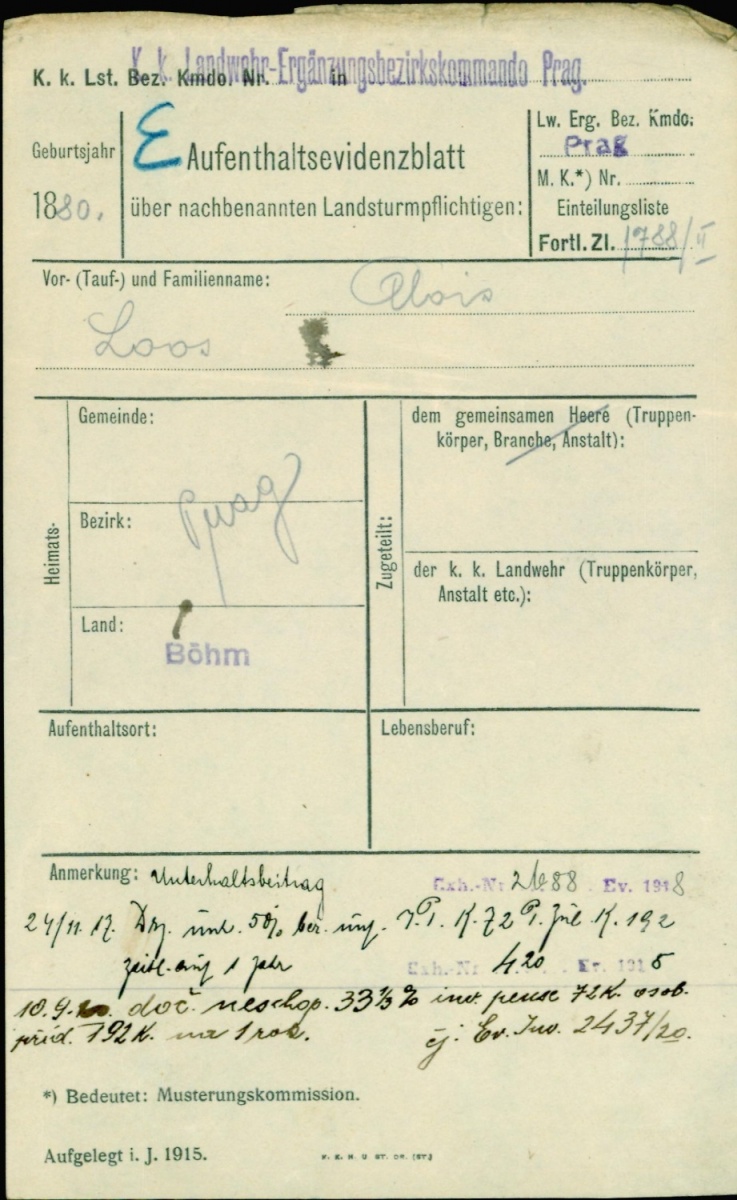 K. k. Landwehr-Ergänzungsbezirkskommando Prag.
K. k. Lst. Bez. Kmdo. Nr. in
Geburtsjahr
1880.
E Aufenthaltsevidenzblatt
über nachbenannten Landsturmpflichtigen:
Lw. Erg. Bez. Kmdo:
Prag
M. K.*) Nr.
Einteilungsliste
Fortl. Zl. 1788/II
Vor- (Tauf-) und Familienname: Alois
Loos
Heimats-
Gemeinde:
Bezirk: Prag
Land:
Böhm
Zugeteilt:
dem gemeinsamen Heere (Truppen-
körper, Branche, Anstalt):
der k. k. Landwehr (Truppenkörper,
Anstalt etc.):
Aufenthaltsort:
Lebensberuf:
Anmerkung: Unterhaltsbeitrag
Exh.-Nr. 2688 Ev. 1918
24/11. 17. inv. 50% ber. K. 72 K. 192
zeitl. auf 1 Jahr
Exh.-Nr. 420 Ev. 191
10.9. doč. neschop. 33⅓% inv. pense 72K. osob.
příd. 192K. na 1 rok.
čj. Ev. Inv. 2437/20.
*) Bedeutet: Musterungskommission.
Aufgelegt i. J. 1915.